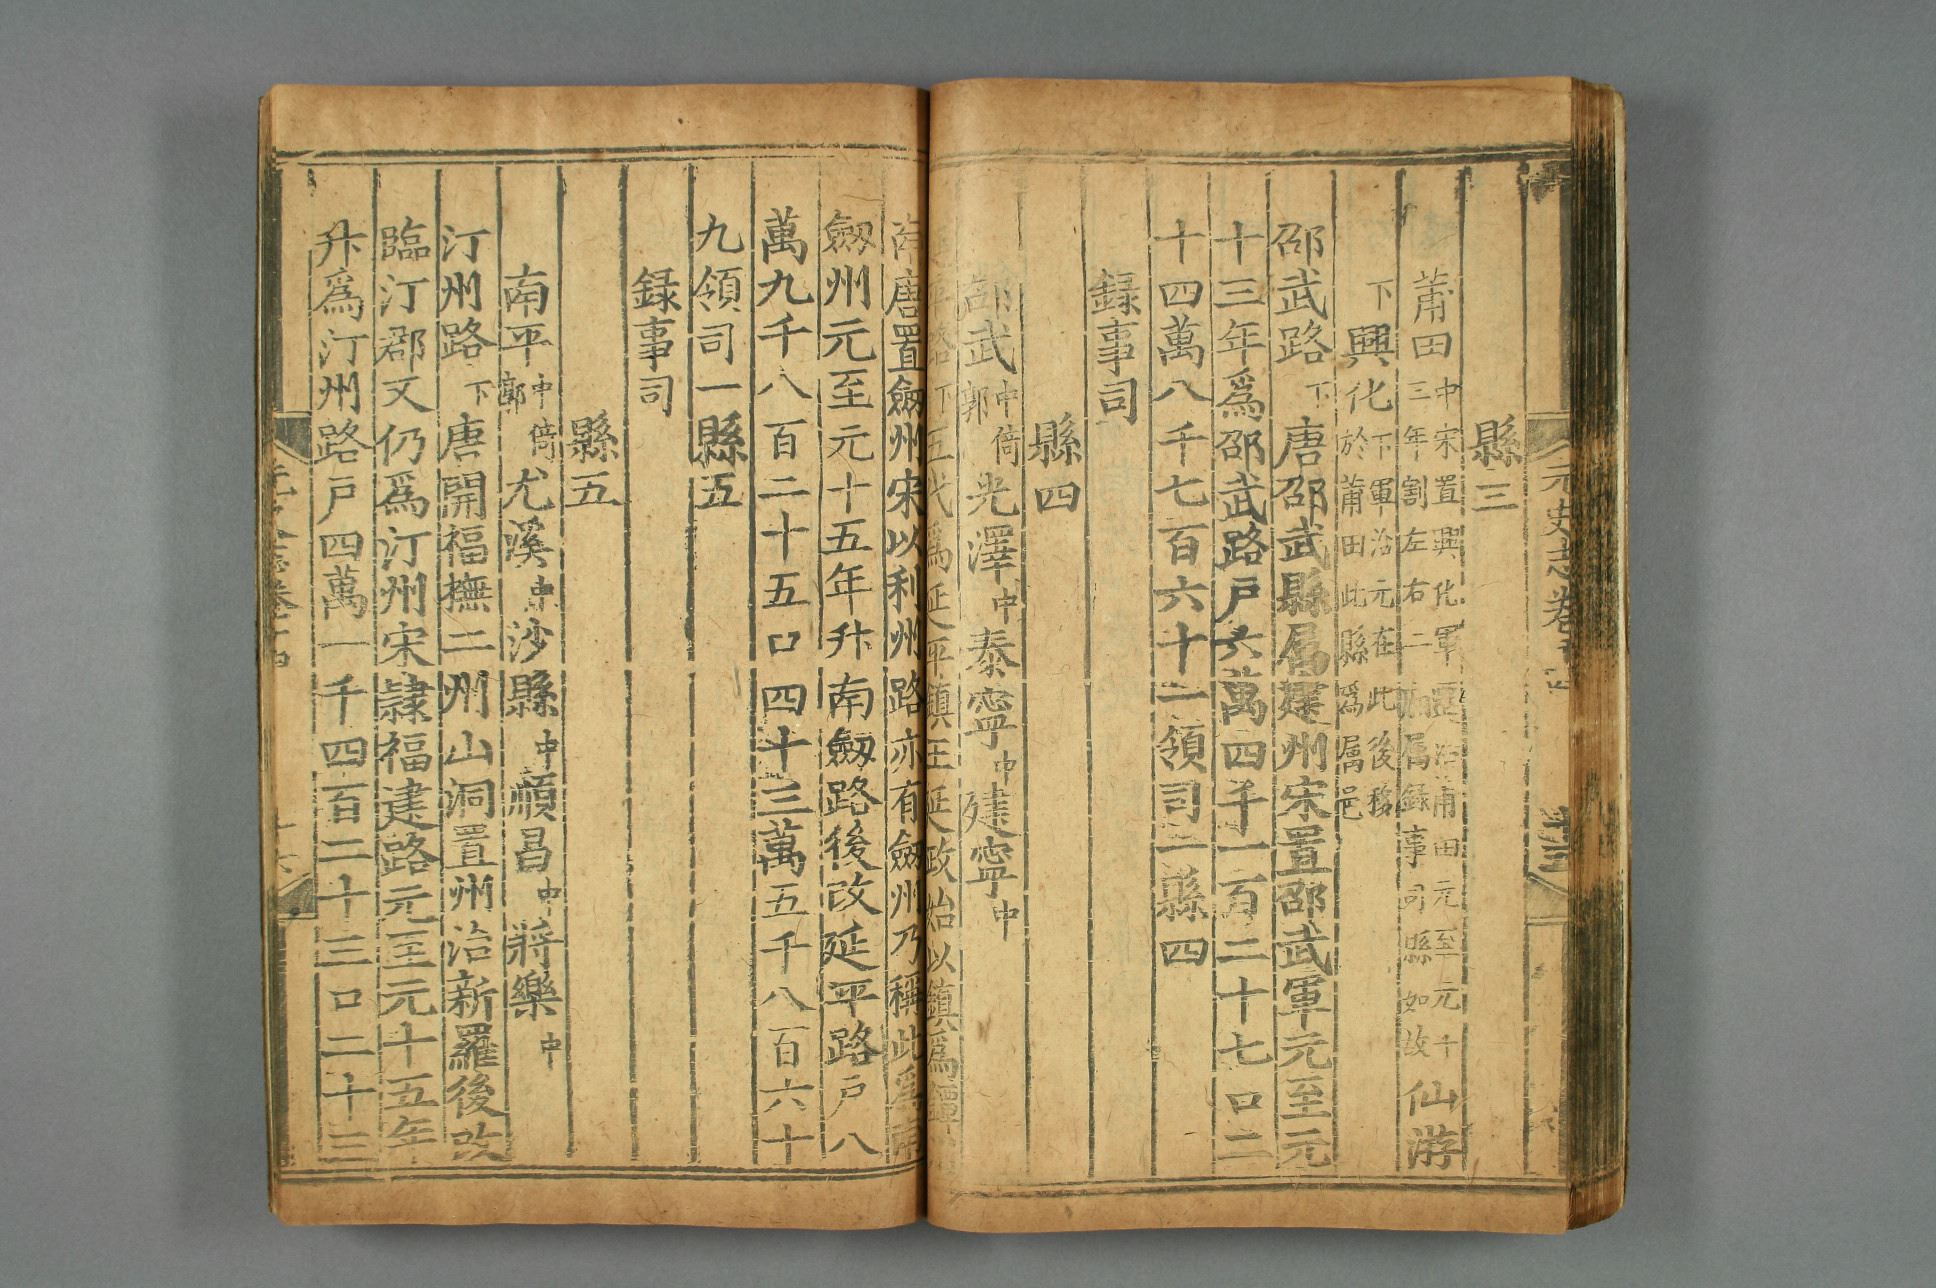 元史志卷十四
縣三
莆田中宋置興化軍遷治莆田元至元十三年割左右二廂屬録事司縣如故仙游
下興化下軍治元在此後移於莆田此縣爲屬邑
邵武路下唐邵武縣屬建州宋置邵武軍元至元
十三年爲邵武路戶六萬四千一百二十七口二
十四萬八千七百六十一領司一縣四
録事司
縣四
邵武中倚郭光澤中泰寧中建寧中
延平路下五代爲延平鎮王延政始以鎮爲鐔州
南唐置劒州宋以利州路亦有劒州乃稱此爲南
劒州元至元十五年升南劒路後改延平路戶八
萬九千八百二十五口四十三萬五千八百六十
九領司一縣五
録事司
縣五
南平中倚郭尤溪中沙縣中順昌中將樂中
汀州路下唐開福撫二州山洞置州治新羅後改
臨汀郡又仍爲汀州宋隷福建路元至元十五年
升爲汀州路戶四萬一千四百二十三口二十三